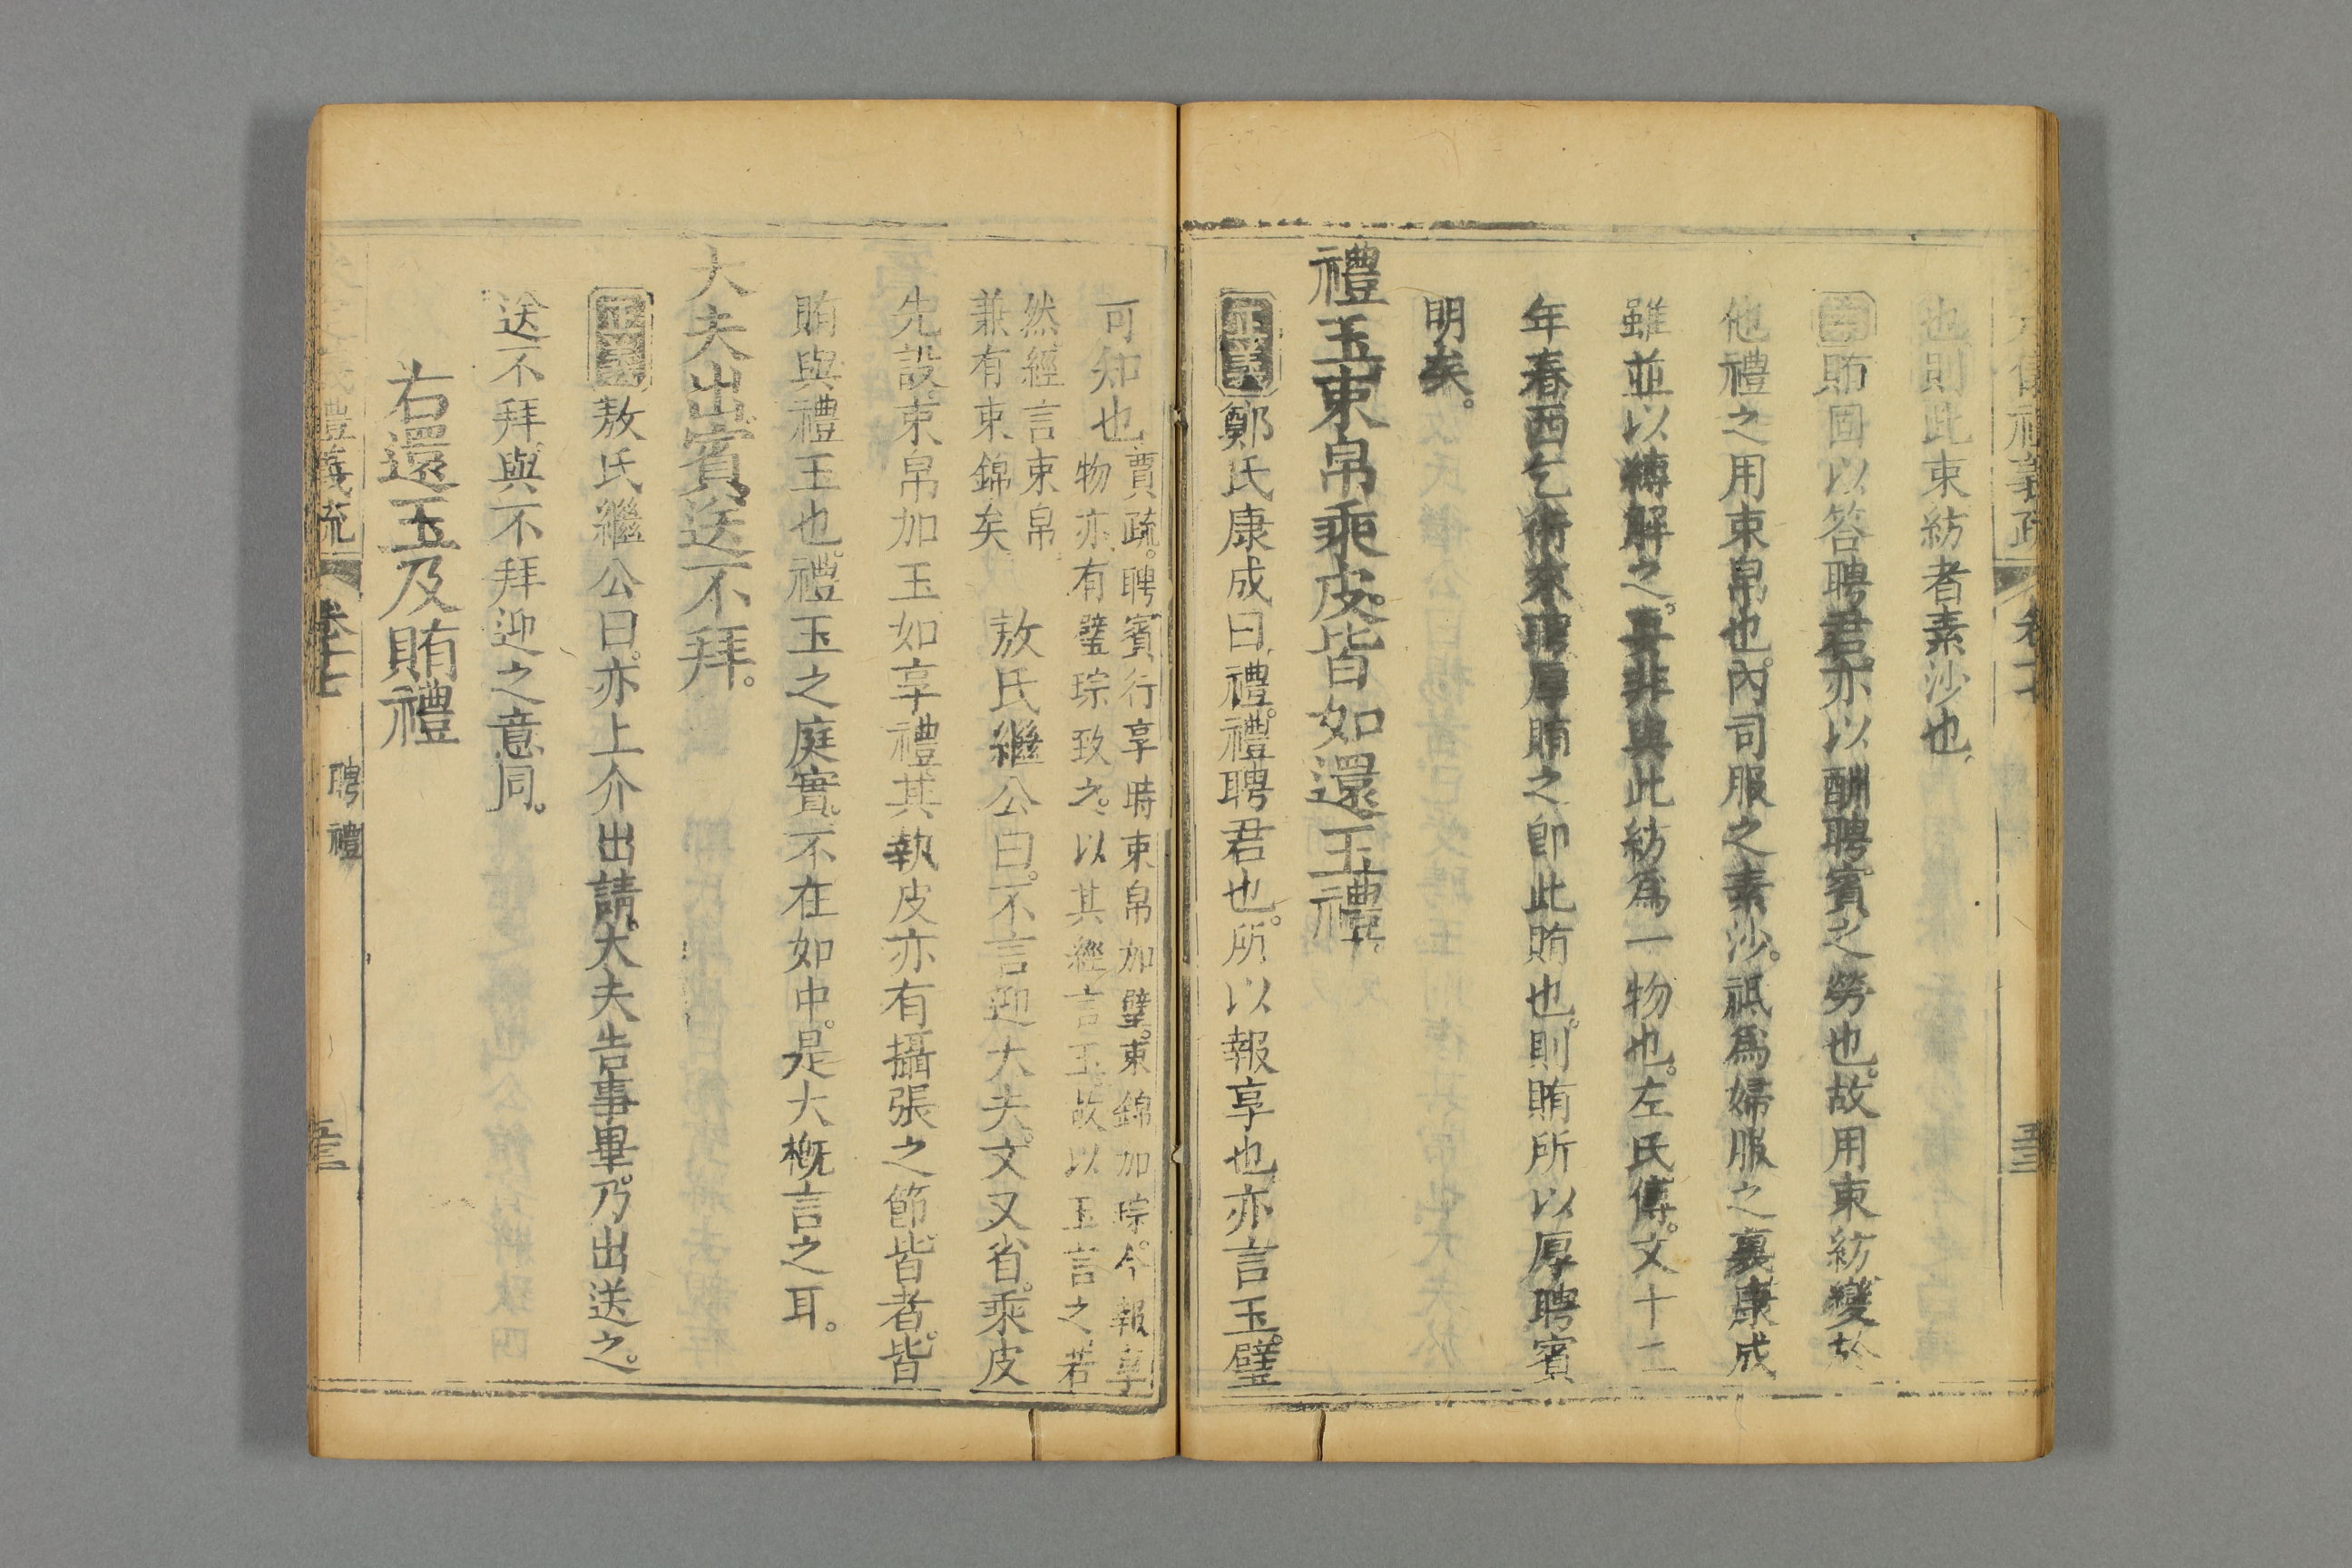 也則此束紡者素沙也
賄固以答聘君亦以酬聘賓之勞也。故用束紡變於
他禮之用束帛也。內司服之素沙。祗爲婦服之裏康成
雖並以縳解之。要非與此紡爲一物也。左氏傳。文十二
年春西乞術來聘厚賄之卽此賄也。則賄所以厚聘賓
明矣。
禮玉束帛乘皮。皆如還玉禮
正義鄭氏康成曰。禮。禮聘君也。所以報享也。亦言玉。璧
可知也賈疏。聘賓行享時束帛加璧。束錦加琮。今報享
物亦有璧琮致之。以其經言玉。故以玉言之若
然經言束帛
兼有束錦矣 敖氏繼公曰。不言迎大夫。文又省。乘皮
先設。束帛加玉如享禮其執皮亦有攝張之節。皆者。皆
賄與禮玉也。禮玉之庭實。不在如中。是大槪言之耳。
大夫出賓送不拜。
正義敖氏繼公曰。亦上介出請。大夫告事畢。乃出送之。
送不拜與不拜迎之意同。
右還玉及賄禮
禮義疏 卷十七 聘禮 五三